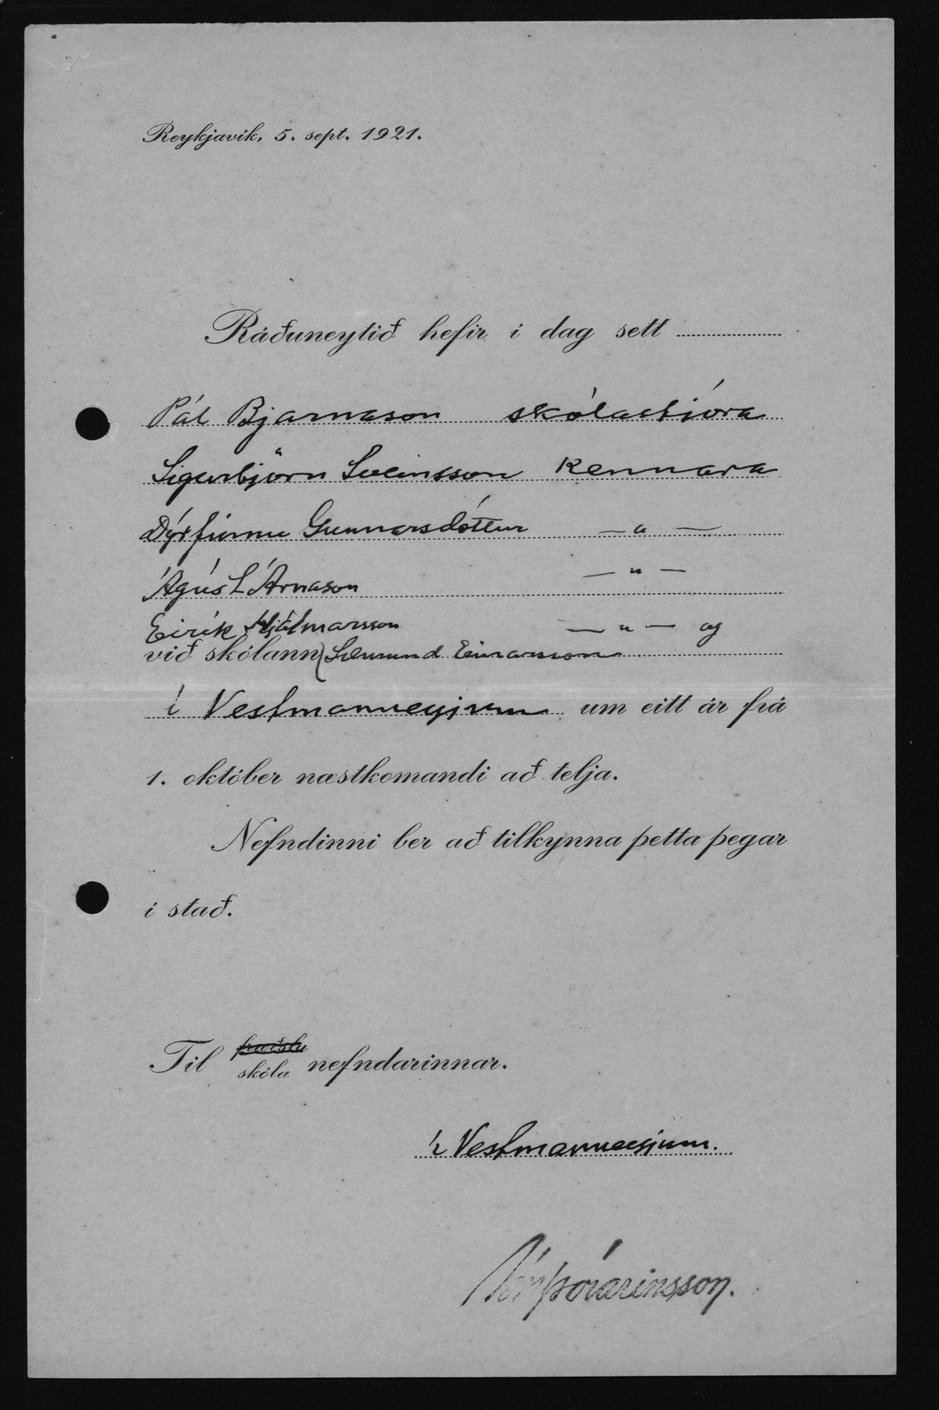 Reykjavík, 5. sept. 1921.
Ráðuneytið hefir í dag sett
Pál Bjarnason skólastjóra
Sigurbjörn Sveinsson kennara
Dýrfinnu Gunnarsdóttur — " —
Ágúst Árnason — " —
Eirík Hjálmarsson — " — og
við skólann Sæmund Einarsson
í Vestmannaeyjum um eitt ár frá
1. október næstkomandi að telja.
Nefndinni ber að tilkynna þetta þegar
í stað.
Til fræðslu
skóla nefndarinnar.
í Vestmannaeyjum.
Þórarinsson.